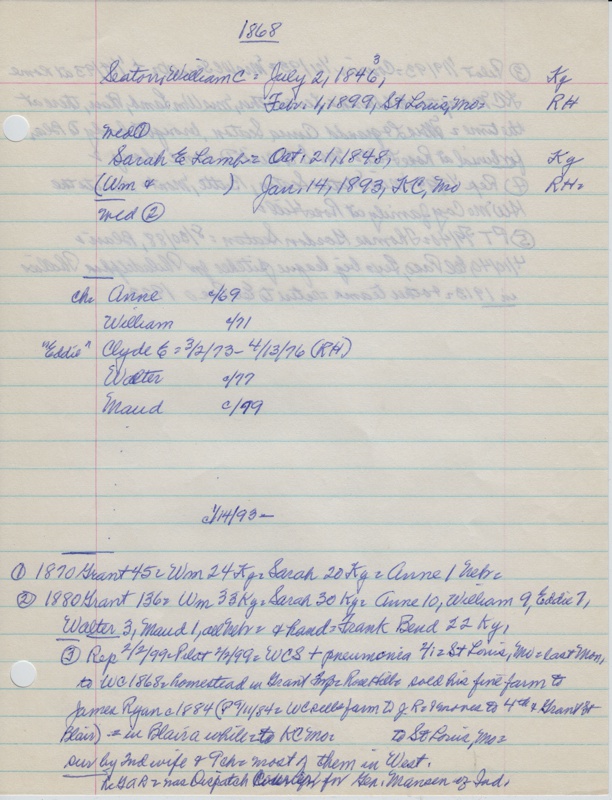 1868
Seaton, William C = July 2, 1846³,   Ky
Feb. 1, 1899, St Louis, Mo=   RH
med ①
Sarah E Lamb = Oct. 21, 1848,   Ky
(Wm &        )   Jan. 14, 1893, KC, Mo   RH=
med ②
ch. Anne   c/69
William   c/71
"Eddie"   Clyde E = 3/2/73 - 4/13/76 (RH)
Walter   c/77
Maud   c/79
1/14/93 -
① 1870 Grant 45 = Wm 24 Ky = Sarah 20 Ky = Anne 1 Nebr =
② 1880 Grant 136 = Wm 33 Ky = Sarah 30 Ky = Anne 10, William 9, Eddie 7,
Walter 3, Maud 1, all Nebr = & hand = Frank Bend 22 Ky,
③ Rep 2/2/99 = Pilot 2/2/99 = WCS + pneumonia 2/1 = St Louis, Mo = last Mon,
to WC 1868 = homestead in Grant Twp = Rose Hill = sold his fine farm to
James Ryan c 1884 (P 9/11/84 = WC sells farm to J R = moves to 4th & Grant St
Blair) = in Blair a while = to KC Mo =   to St Louis, Mo =
sur by 2nd wife & 9 ch = most of them in West.
he GAR = was Dispatch for Gen. Manson of Ind.